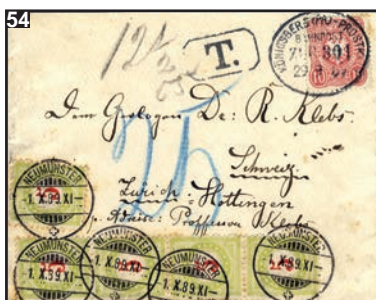 54
12½
T.
KÖNIGSBERG (PR)-PROSTK
BAHNPOST
ZUG 301
29 9 89
Dem Geologen Dr: R. Klebs.
Schweiz
Zürich-Hottingen
Adresse: Professor Klebs
25
NEUMÜNSTER
1.X.89.XI-
NEUMÜNSTER
1.X.89.XI-
NEUMÜNSTER
1.X.89.XI-
NEUMÜNSTER
1.X.89.XI-
NEUMÜNSTER
1.X.89.XI-